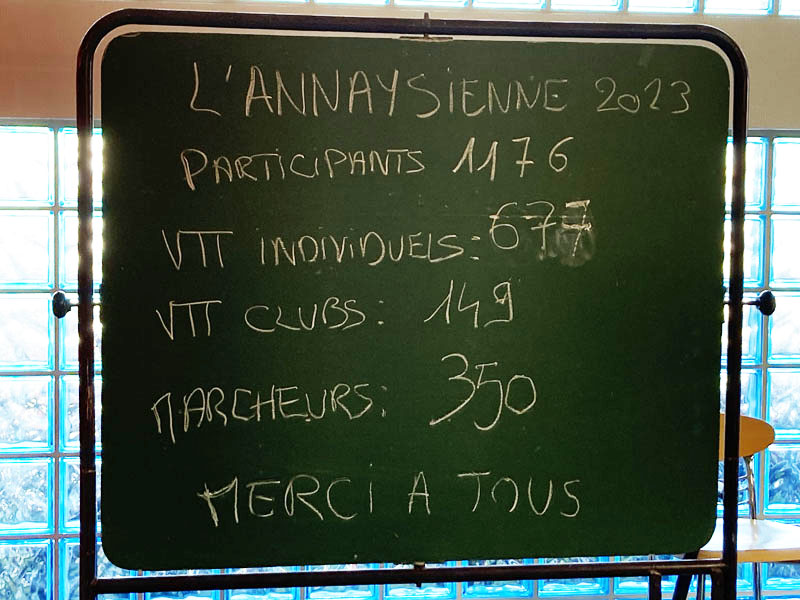 L'ANNAYSIENNE 2023
PARTICIPANTS 1176
VTT INDIVIDUELS: 677
VTT CLUBS: 149
MARCHEURS: 350
MERCI A TOUS